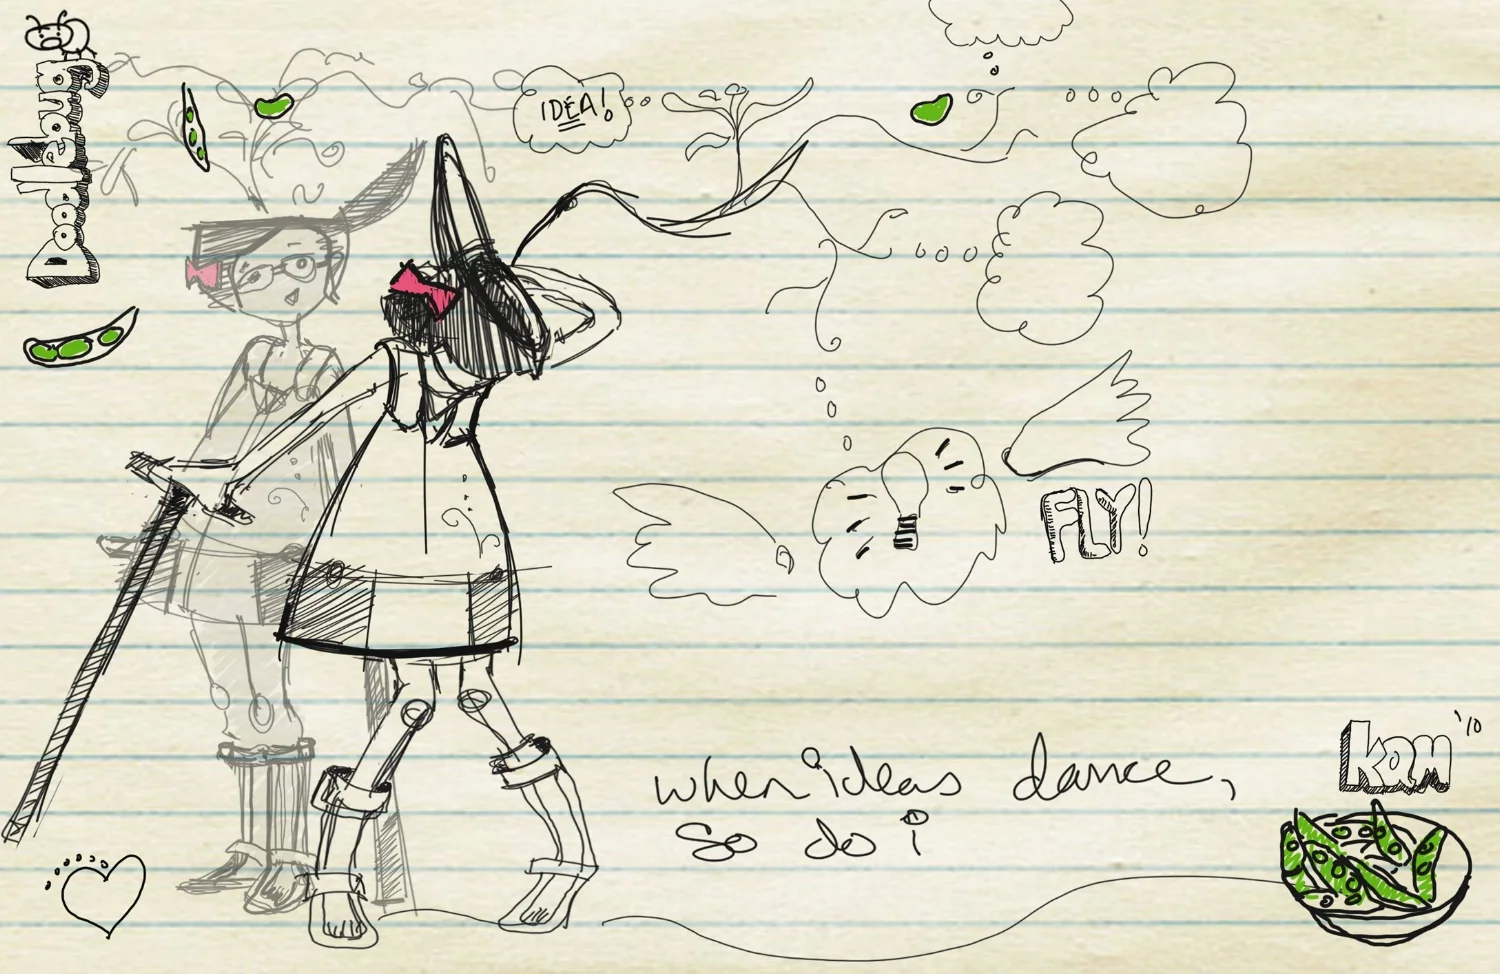 Doodlebug
IDEA!
FLY!
when ideas dance,
so do i
kam '10